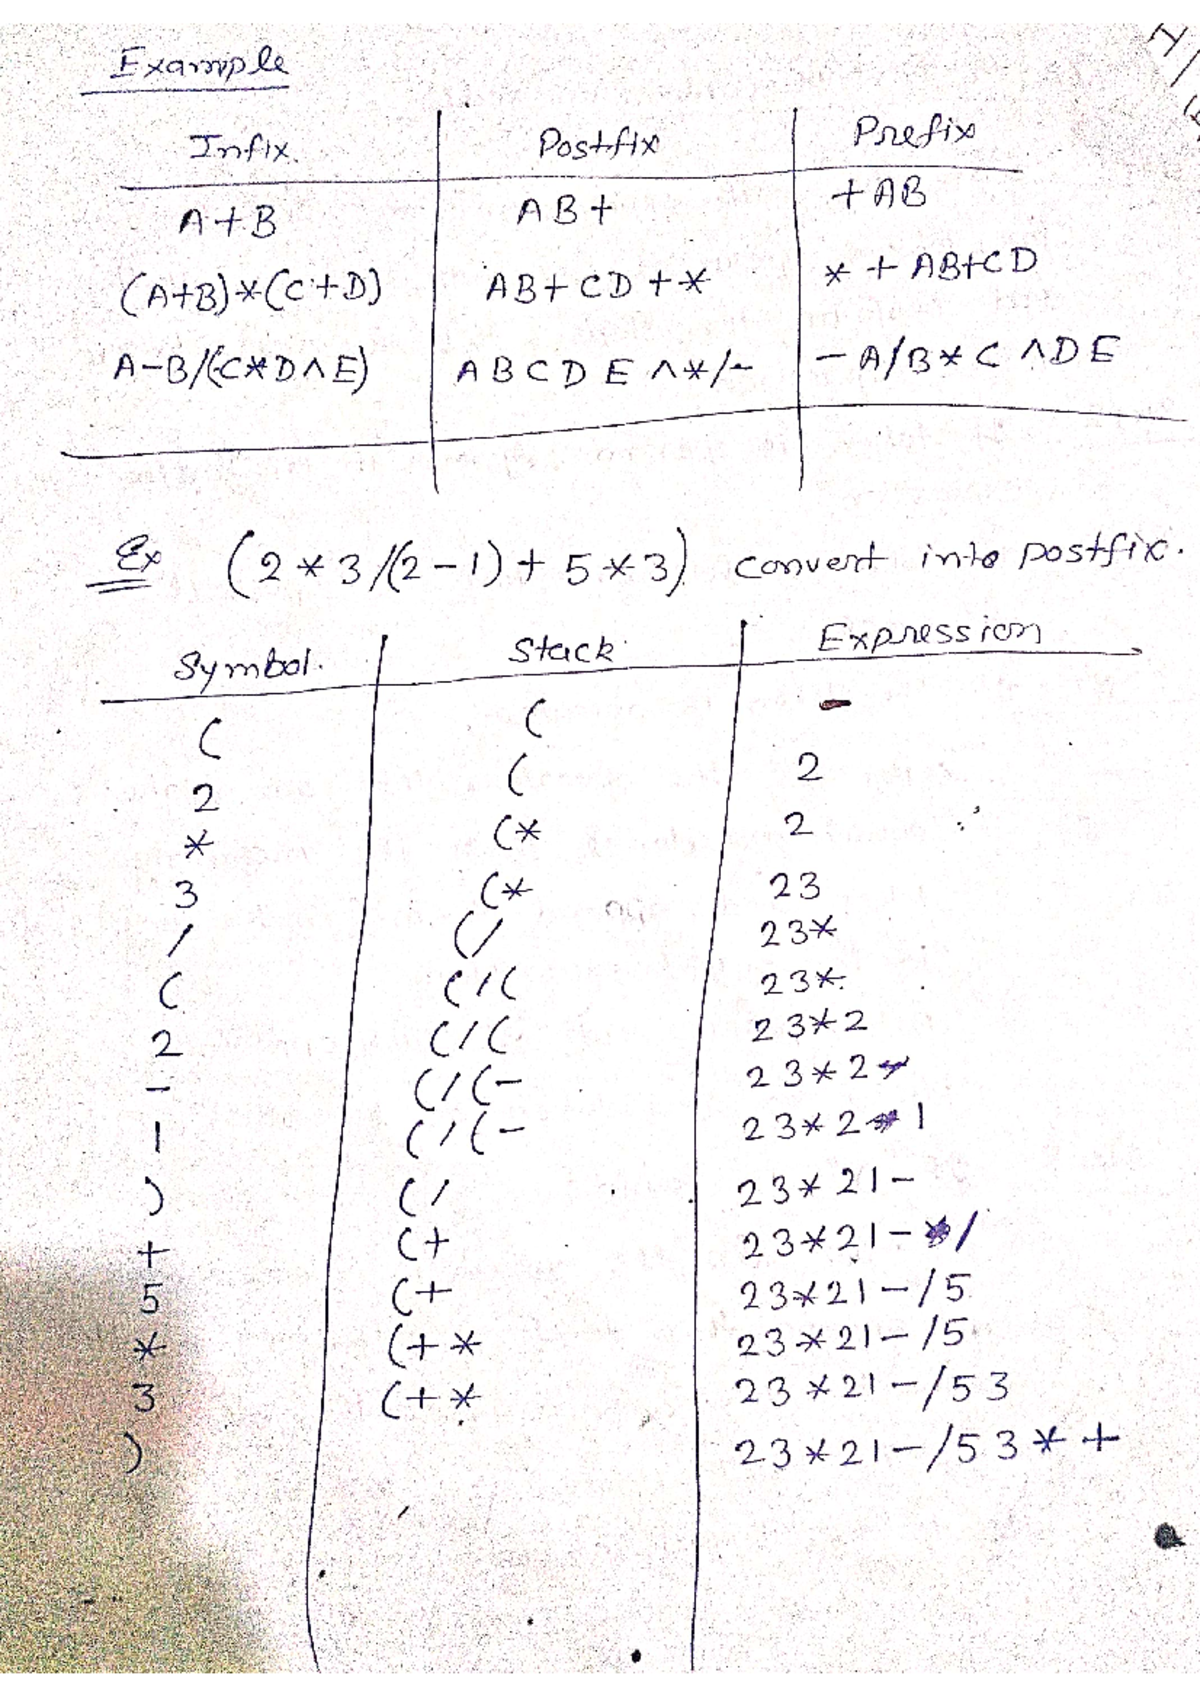 Example
Infix. Postfix Prefix
A+B AB+ +AB
(A+B)*(C+D) AB+CD+* *+AB+CD
A-B/(C*D^E) ABCDE^*/- -A/B*C^DE
Ex (2*3/(2-1)+5*3) convert into postfix.
Symbol. Stack Expression
( ( -
2 ( 2
* (* 2
3 (* 23
/ (/ 23*
( (/( 23*
2 (/( 23*2
- (/(- 23*2
1 (/(- 23*21
) (/ 23*21-
+ (+ 23*21-/
5 (+ 23*21-/5
* (+* 23*21-/5
3 (+* 23*21-/53
) 23*21-/53*+